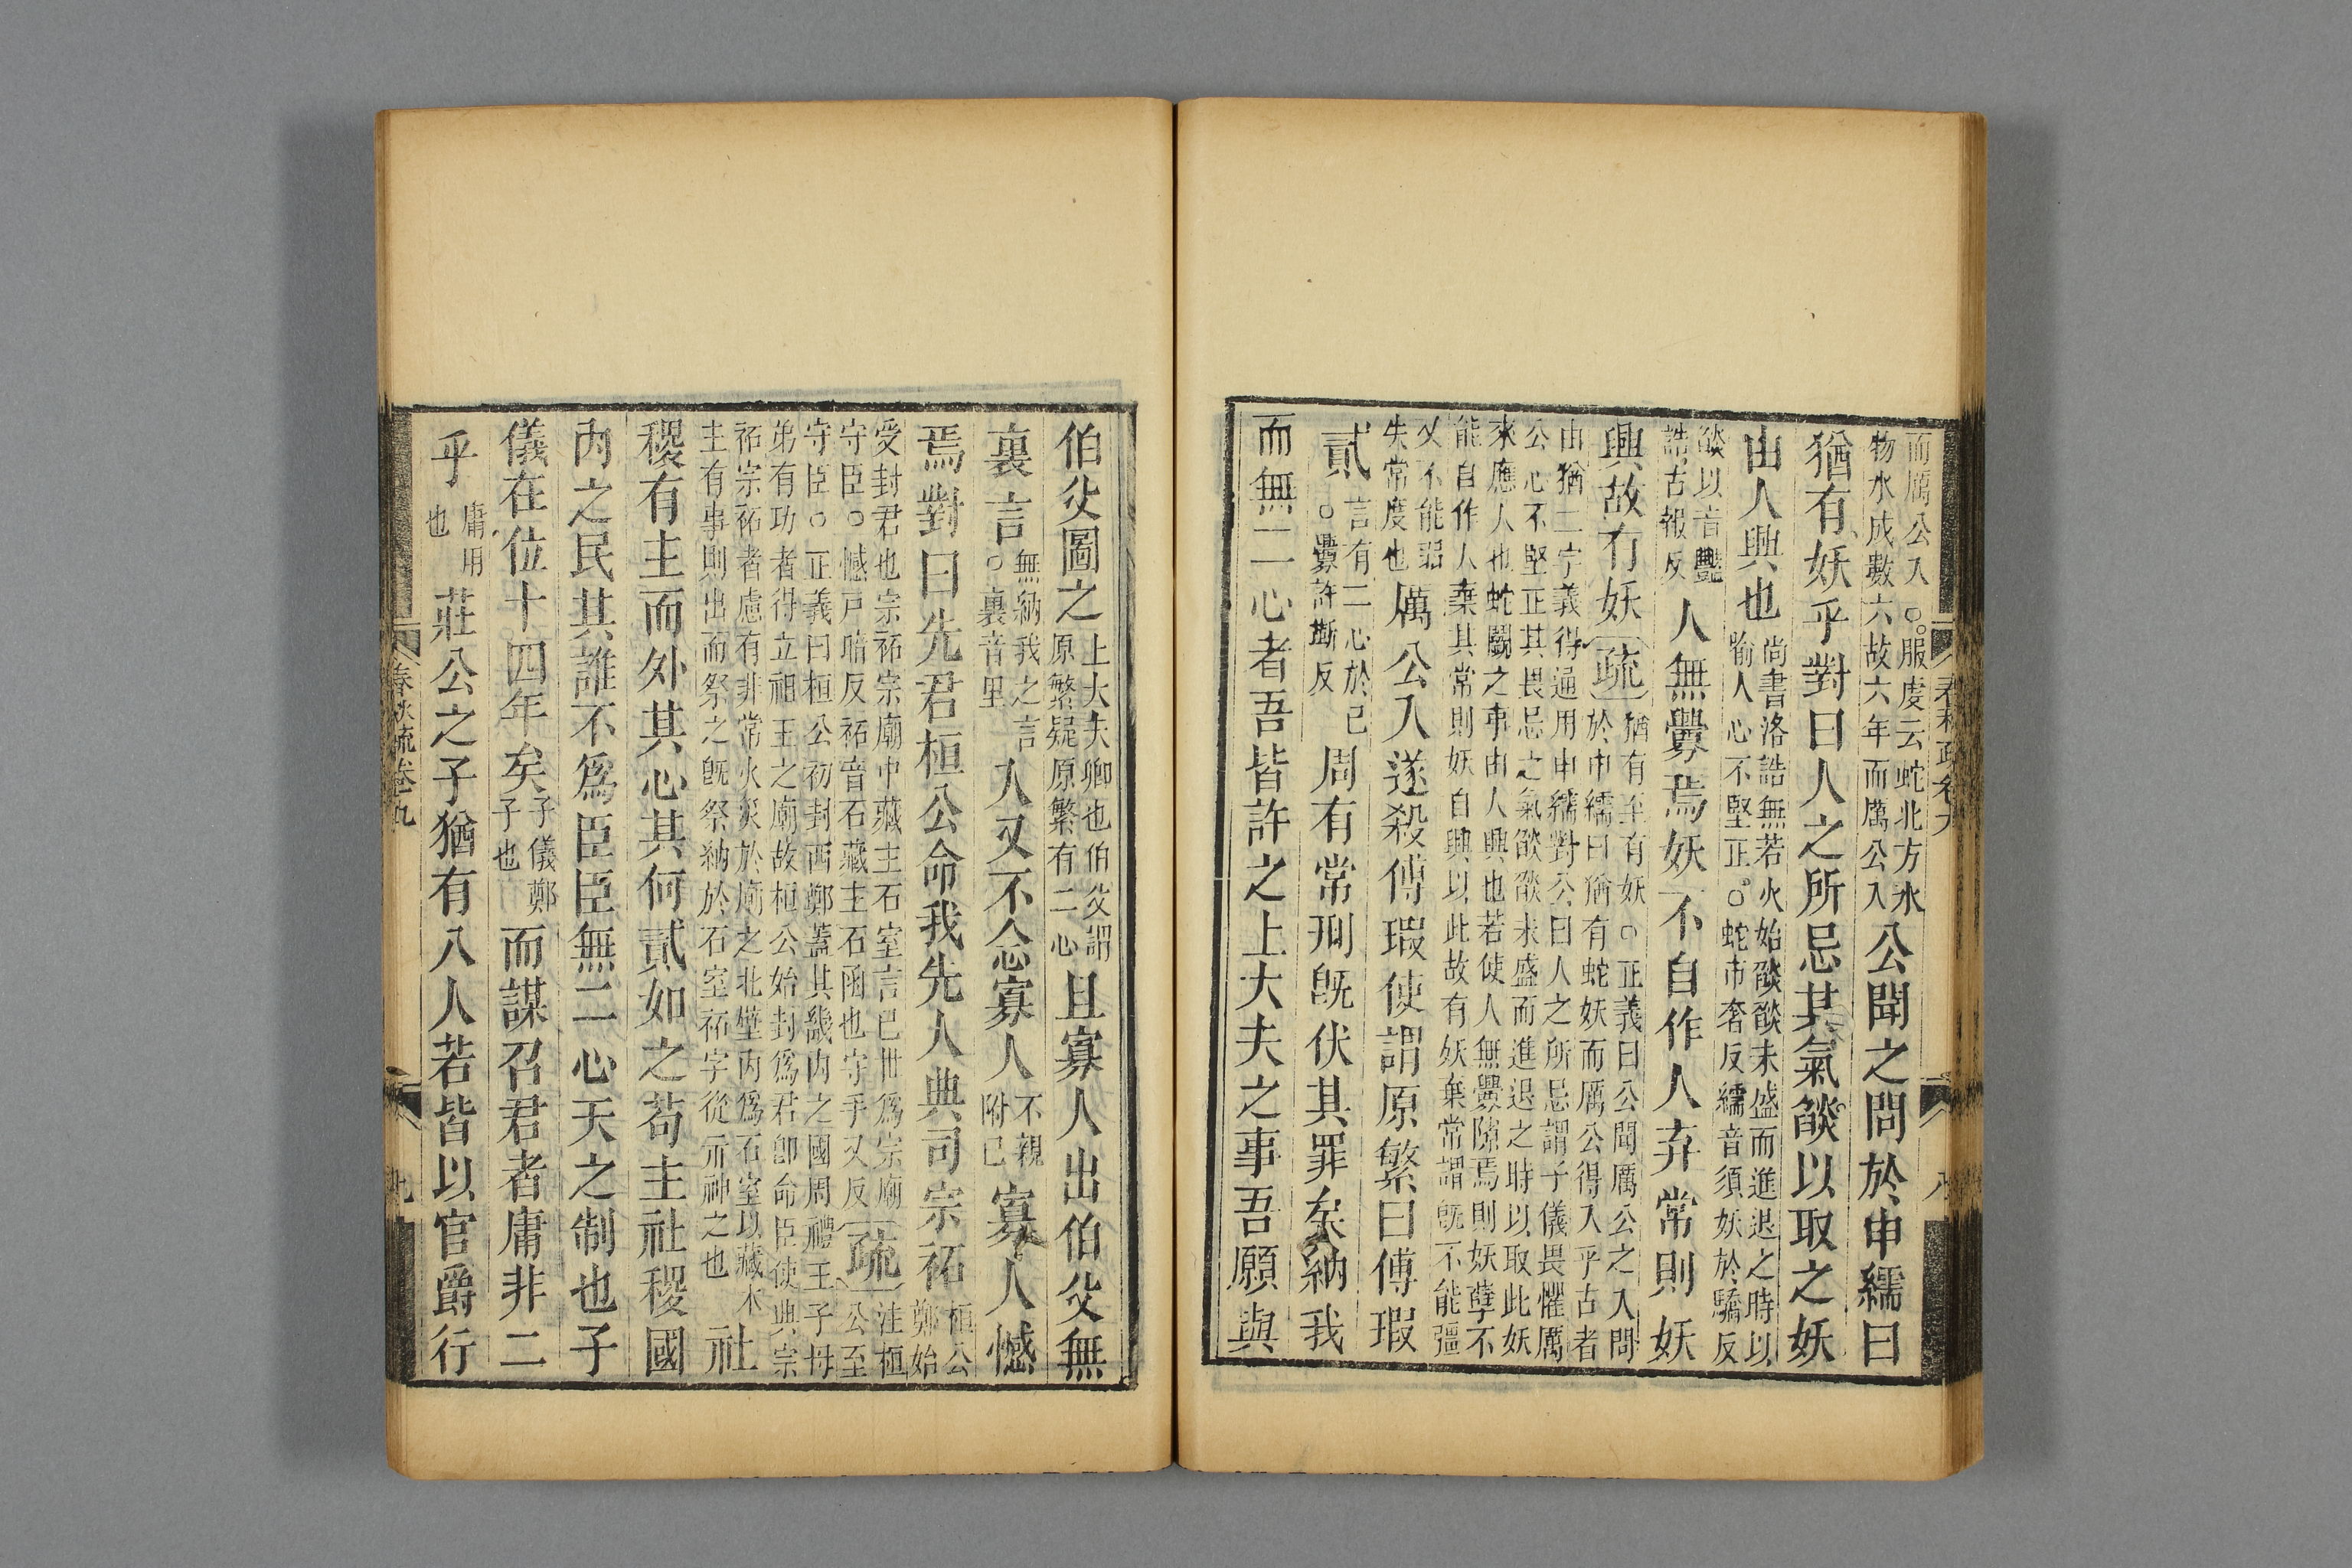 而厲公入○服虔云蛇北方水
物水成數六故六年而厲公入公聞之問於申繻曰
猶有妖乎對曰人之所忌其氣燄以取之妖
由人興也尚書洛誥無若火始燄燄未盛而進退之時以
喻人心不堅正○蛇市奢反繻音須妖於驕反
燄以音豔
誥古報反人無釁焉妖不自作人弃常則妖
興故有妖疏猶有至有妖○正義曰公聞厲公之入問
於申繻曰猶有蛇妖而厲公得入乎古者
由猶二字義得通用申繻對公曰人之所忌謂子儀畏懼厲
公心不堅正其畏忌之氣燄燄未盛而進退之時以取此妖
來應人也蛇鬬之事由人興也若使人無釁隙焉則妖孽不
能自作人棄其常則妖自興以此故有妖棄常謂旣不能彊
又不能弱
失常度也厲公入遂殺傅瑕使謂原繁曰傅瑕
貳言有二心於已
○釁許靳反周有常刑旣伏其罪矣納我
而無二心者吾皆許之上大夫之事吾願與
伯父圖之上大夫卿也伯父謂
原繁疑原繁有二心且寡人出伯父無
裏言無納我之言
○裏音里入又不念寡人不親
附已寡人憾
焉對曰先君桓公命我先人典司宗祏桓公
鄭始
受封君也宗祏宗廟中藏主石室言已世爲宗廟
守臣○憾戸暗反祏音石藏主石函也守手又反疏注桓
公至
守臣○正義曰桓公初封西鄭蓋其畿内之國周禮王子母
弟有功者得立祖王之廟故桓公始封爲君卽命臣使典宗
祏宗祏者慮有非常火災於廟之北壁内爲石室以藏木
主有事則出而祭之旣祭納於石室祏字從示神之也社
稷有主而外其心其何貳如之苟主社稷國
内之民其誰不爲臣臣無二心天之制也子
儀在位十四年矣子儀鄭
子也而謀召君者庸非二
乎庸用
也莊公之子猶有八人若皆以官爵行
春秋疏卷九
九